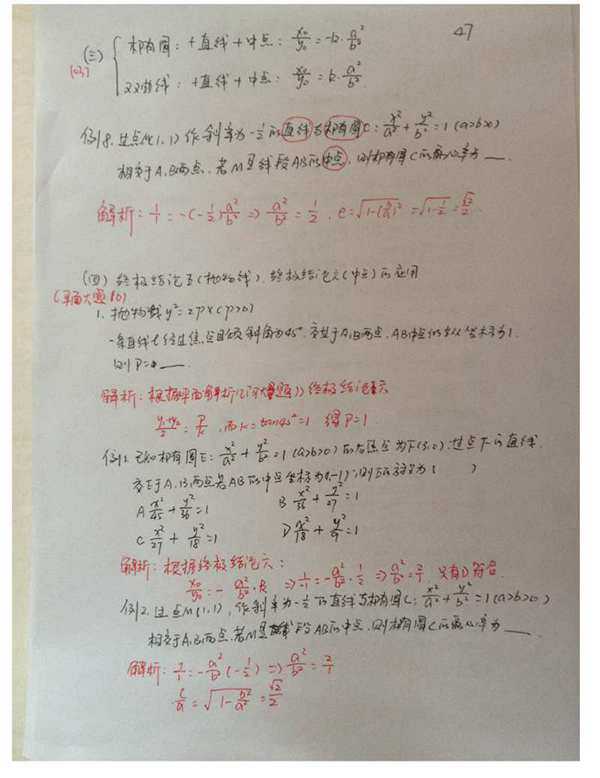 47
(三) { 椭圆：+直线+中点： x₀/y₀ = -k·a²/b²
双曲线：+直线+中点： x₀/y₀ = k·a²/b²
例8. 过点M(1,1)作斜率为-1/2的直线与椭圆C: x²/a² + y²/b² = 1 (a>b>0)
相交于A,B两点, 若M是线段AB的中点, 则椭圆C的离心率为 ___
解析：1/1 = -(-1/2)a²/b² ⇒ a²/b² = 1/2 , e = √1-(b/a)² = √1-1/2 = √2/2
(四) 终极结论五(抛物线), 终极结论六(中点)的应用
1. 抛物线y²=2px(p>0)
一条直线l经过焦点且倾斜角为45°, 交于A,B两点, AB中点的纵坐标为1.
则P= ___
解析：根据平面解析几何大题》终极结论六
(y₁+y₂)/2 = P/k , 而k=tan45°=1 得P=1
例1. 已知椭圆E: x²/a² + y²/b² = 1 (a>b>0)的右焦点为F(3,0), 过点F的直线
交E于A,B两点若AB的中点坐标为(1,-1), 则E的方程为 ( )
A x²/45 + y²/36 = 1 B x²/36 + y²/27 = 1
C x²/27 + y²/18 = 1 D x²/18 + y²/9 = 1
解析：根据终极结论六：
x₀/y₀ = - a²/b²·k ⇒ 1/-1 = -a²/b²·1/2 ⇒ a²/b² = 2/1 , 只有D符合
例2. 过点M(1,1), 作斜率为-1/2的直线与椭圆C: x²/a² + y²/b² = 1 (a>b>0)
相交于A,B两点, 若M是线段AB的中点, 则椭圆C的离心率为 ___
解析：1/1 = -a²/b²(-1/2) ⇒ a²/b² = 2/1
c/a = √1-b²/a² = √2/2